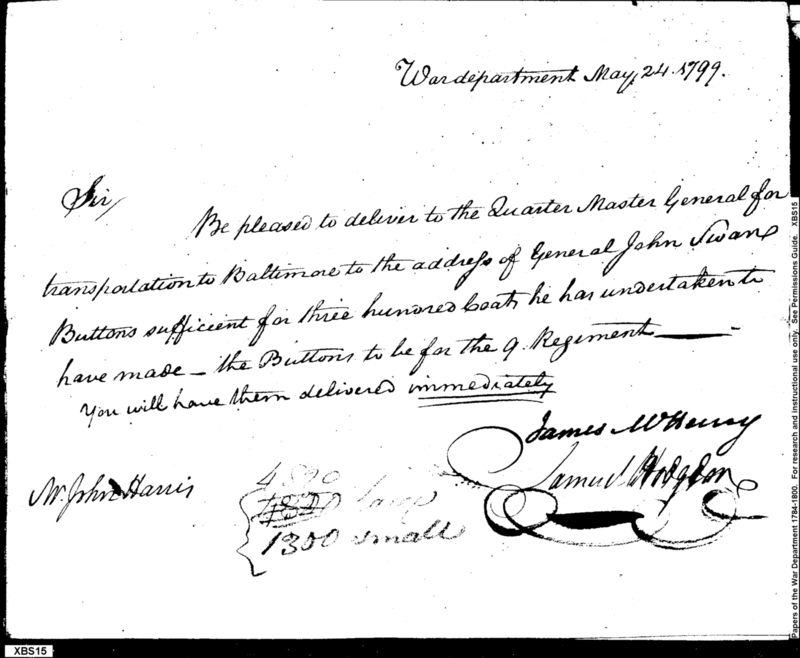 War department May, 24. 1799.
Sir,
Be pleased to deliver to the Quarter Master General for
transportation to Baltimore to the address of General John Swan
Buttons sufficient for three hundred Coats he has undertaken to
have made – the Buttons to be for the 9. Regiment
You will have them delivered immediately
James McHenry
Samuel Hodgdon
Mr. John Harris
large
1300 small
XBS15
Papers of the War Department 1784-1800. For research and instructional use only. See Permissions Guide. XBS15